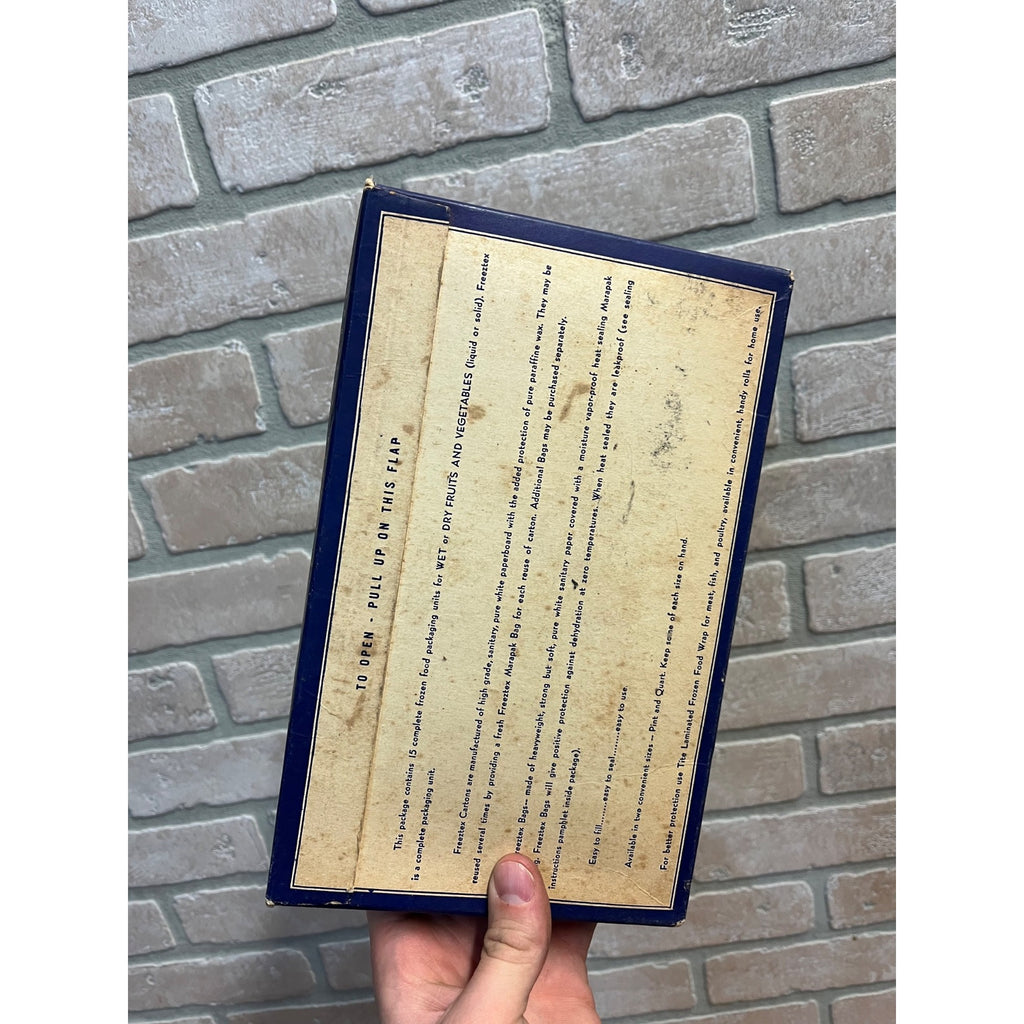 TO OPEN - PULL UP ON THIS FLAP
This package contains 15 complete frozen food packaging units for WET or DRY FRUITS AND VEGETABLES (liquid or solid). Freeztex
is a complete packaging unit.
Freeztex Cartons are manufactured of high grade, sanitary, pure white paperboard with the added protection of pure paraffine wax. They may be
reused several times by providing a fresh Freeztex Marapak Bag for each reuse of carton. Additional Bags may be purchased separately.
reeztex Bags— made of heavyweight, strong but soft, pure white sanitary paper covered with a moisture vapor-proof heat sealing Marapak
g. Freeztex Bags will give positive protection against dehydration at zero temperatures. When heat sealed they are leakproof (see sealing
instructions pamphlet inside package).
Easy to fill........easy to seal........easy to use.
Available in two convenient sizes — Pint and Quart. Keep some of each size on hand.
For better protection use Tite Laminated Frozen Food Wrap for meat, fish, and poultry, available in convenient, handy rolls for home use.